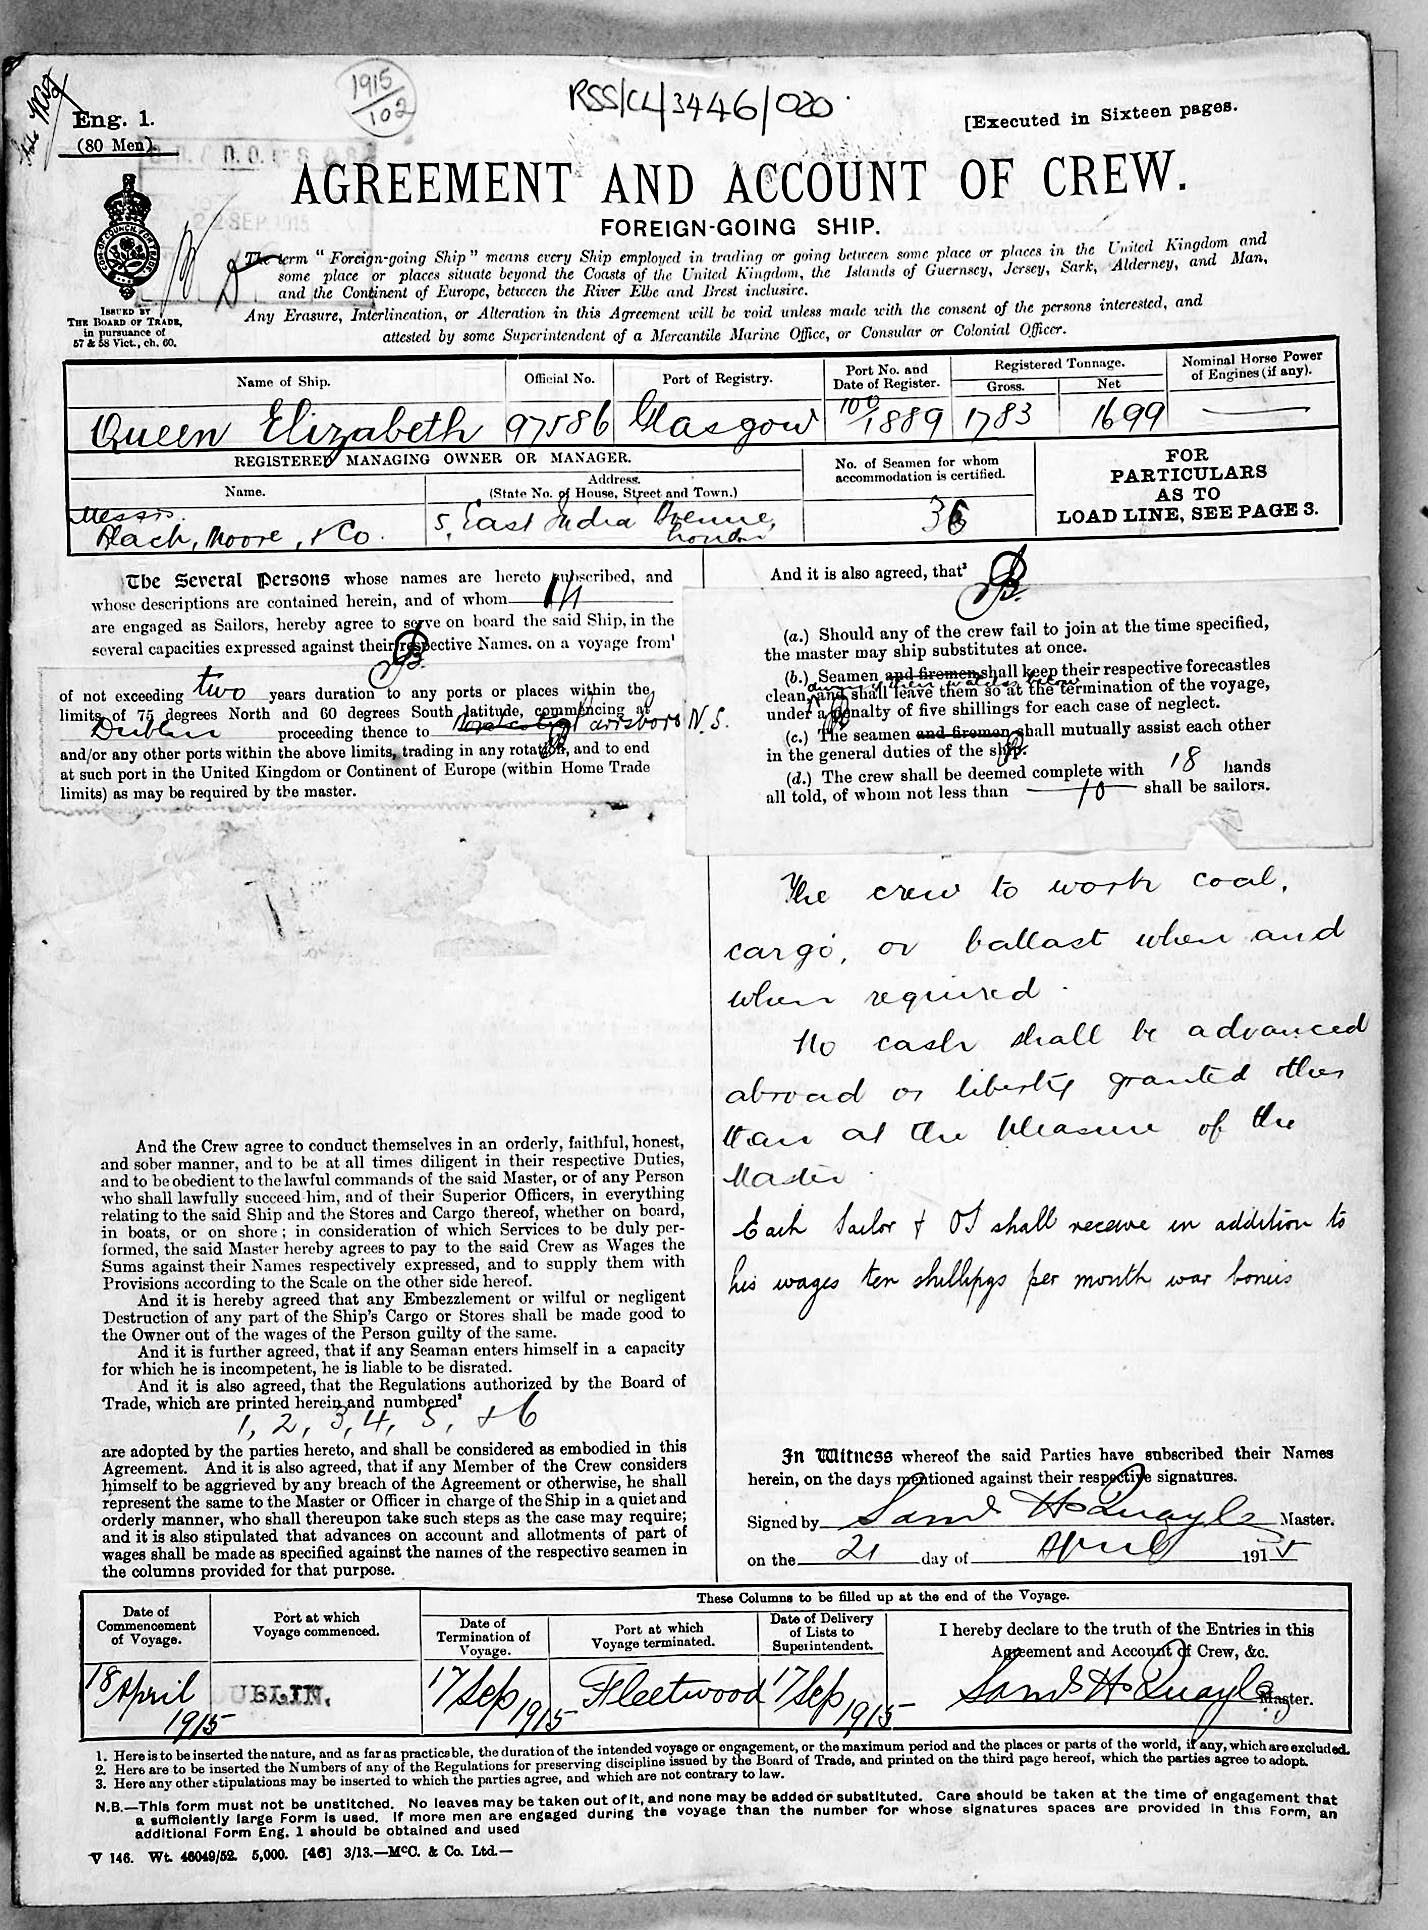 1915
102
RSS/CL/3446/020
Eng. 1.
(80 Men).
[Executed in Sixteen pages.
AGREEMENT AND ACCOUNT OF CREW.
FOREIGN-GOING SHIP.
SEP 1915
The term "Foreign-going Ship" means every Ship employed in trading or going between some place or places in the United Kingdom and
some place or places situate beyond the Coasts of the United Kingdom, the Islands of Guernsey, Jersey, Sark, Alderney, and Man,
and the Continent of Europe, between the River Elbe and Brest inclusive.
Any Erasure, Interlineation, or Alteration in this Agreement will be void unless made with the consent of the persons interested, and
attested by some Superintendent of a Mercantile Marine Office, or Consular or Colonial Officer.
ISSUED BY
THE BOARD OF TRADE,
in pursuance of
57 & 58 Vict., ch. 60.
Name of Ship. Official No. Port of Registry. Port No. and Date of Register. Registered Tonnage. Gross. Net Nominal Horse Power of Engines (if any).
Queen Elizabeth 97586 Glasgow 100/1889 1783 1699 —
REGISTERED MANAGING OWNER OR MANAGER.
Name. Address. (State No. of House, Street and Town.)
No. of Seamen for whom accommodation is certified.
FOR
PARTICULARS
AS TO
LOAD LINE, SEE PAGE 3.
Messrs.
Black, Moore, & Co. 5, East India Avenue, London 36
The Several Persons whose names are hereto subscribed, and
whose descriptions are contained herein, and of whom 14
are engaged as Sailors, hereby agree to serve on board the said Ship, in the
several capacities expressed against their respective Names, on a voyage from¹
of not exceeding two years duration to any ports or places within the
limits of 75 degrees North and 60 degrees South latitude, commencing at
Dublin proceeding thence to Parrsboro N.S.
and/or any other ports within the above limits, trading in any rotation, and to end
at such port in the United Kingdom or Continent of Europe (within Home Trade
limits) as may be required by the master.
And the Crew agree to conduct themselves in an orderly, faithful, honest,
and sober manner, and to be at all times diligent in their respective Duties,
and to be obedient to the lawful commands of the said Master, or of any Person
who shall lawfully succeed him, and of their Superior Officers, in everything
relating to the said Ship and the Stores and Cargo thereof, whether on board,
in boats, or on shore; in consideration of which Services to be duly per-
formed, the said Master hereby agrees to pay to the said Crew as Wages the
Sums against their Names respectively expressed, and to supply them with
Provisions according to the Scale on the other side hereof.
And it is hereby agreed that any Embezzlement or wilful or negligent
Destruction of any part of the Ship's Cargo or Stores shall be made good to
the Owner out of the wages of the Person guilty of the same.
And it is further agreed, that if any Seaman enters himself in a capacity
for which he is incompetent, he is liable to be disrated.
And it is also agreed, that the Regulations authorized by the Board of
Trade, which are printed herein and numbered²
1, 2, 3, 4, 5, & 6
are adopted by the parties hereto, and shall be considered as embodied in this
Agreement. And it is also agreed, that if any Member of the Crew considers
himself to be aggrieved by any breach of the Agreement or otherwise, he shall
represent the same to the Master or Officer in charge of the Ship in a quiet and
orderly manner, who shall thereupon take such steps as the case may require;
and it is also stipulated that advances on account and allotments of part of
wages shall be made as specified against the names of the respective seamen in
the columns provided for that purpose.
And it is also agreed, that³
(a.) Should any of the crew fail to join at the time specified,
the master may ship substitutes at once.
(b.) Seamen and firemen shall keep their respective forecastles
during their watches below
clean, and shall leave them so at the termination of the voyage,
under a penalty of five shillings for each case of neglect.
(c.) The seamen and firemen shall mutually assist each other
in the general duties of the ship.
(d.) The crew shall be deemed complete with 18 hands
all told, of whom not less than 10 shall be sailors.
The crew to work coal,
cargo, or ballast when and
when required.
No cash shall be advanced
abroad or liberty granted other
than at the pleasure of the
Master.
Each Sailor & OS shall receive in addition to
his wages ten shillings per month war bonus
In Witness whereof the said Parties have subscribed their Names
herein, on the days mentioned against their respective signatures.
Signed by Saml H Quayle Master.
on the 21 day of April 1915
These Columns to be filled up at the end of the Voyage.
Date of Commencement of Voyage. Port at which Voyage commenced. Date of Termination of Voyage. Port at which Voyage terminated. Date of Delivery of Lists to Superintendent. I hereby declare to the truth of the Entries in this Agreement and Account of Crew, &c.
18 April 1915 DUBLIN. 17 Sep 1915 Fleetwood 17 Sep 1915 Saml H Quayle Master.
1. Here is to be inserted the nature, and as far as practicable, the duration of the intended voyage or engagement, or the maximum period and the places or parts of the world, if any, which are excluded.
2. Here are to be inserted the Numbers of any of the Regulations for preserving discipline issued by the Board of Trade, and printed on the third page hereof, which the parties agree to adopt.
3. Here any other stipulations may be inserted to which the parties agree, and which are not contrary to law.
N.B.—This form must not be unstitched. No leaves may be taken out of it, and none may be added or substituted. Care should be taken at the time of engagement that
a sufficiently large Form is used. If more men are engaged during the voyage than the number for whose signatures spaces are provided in this Form, an
additional Form Eng. 1 should be obtained and used
V 146. Wt. 46049/52. 5,000. [46] 3/13.—McC. & Co. Ltd.—